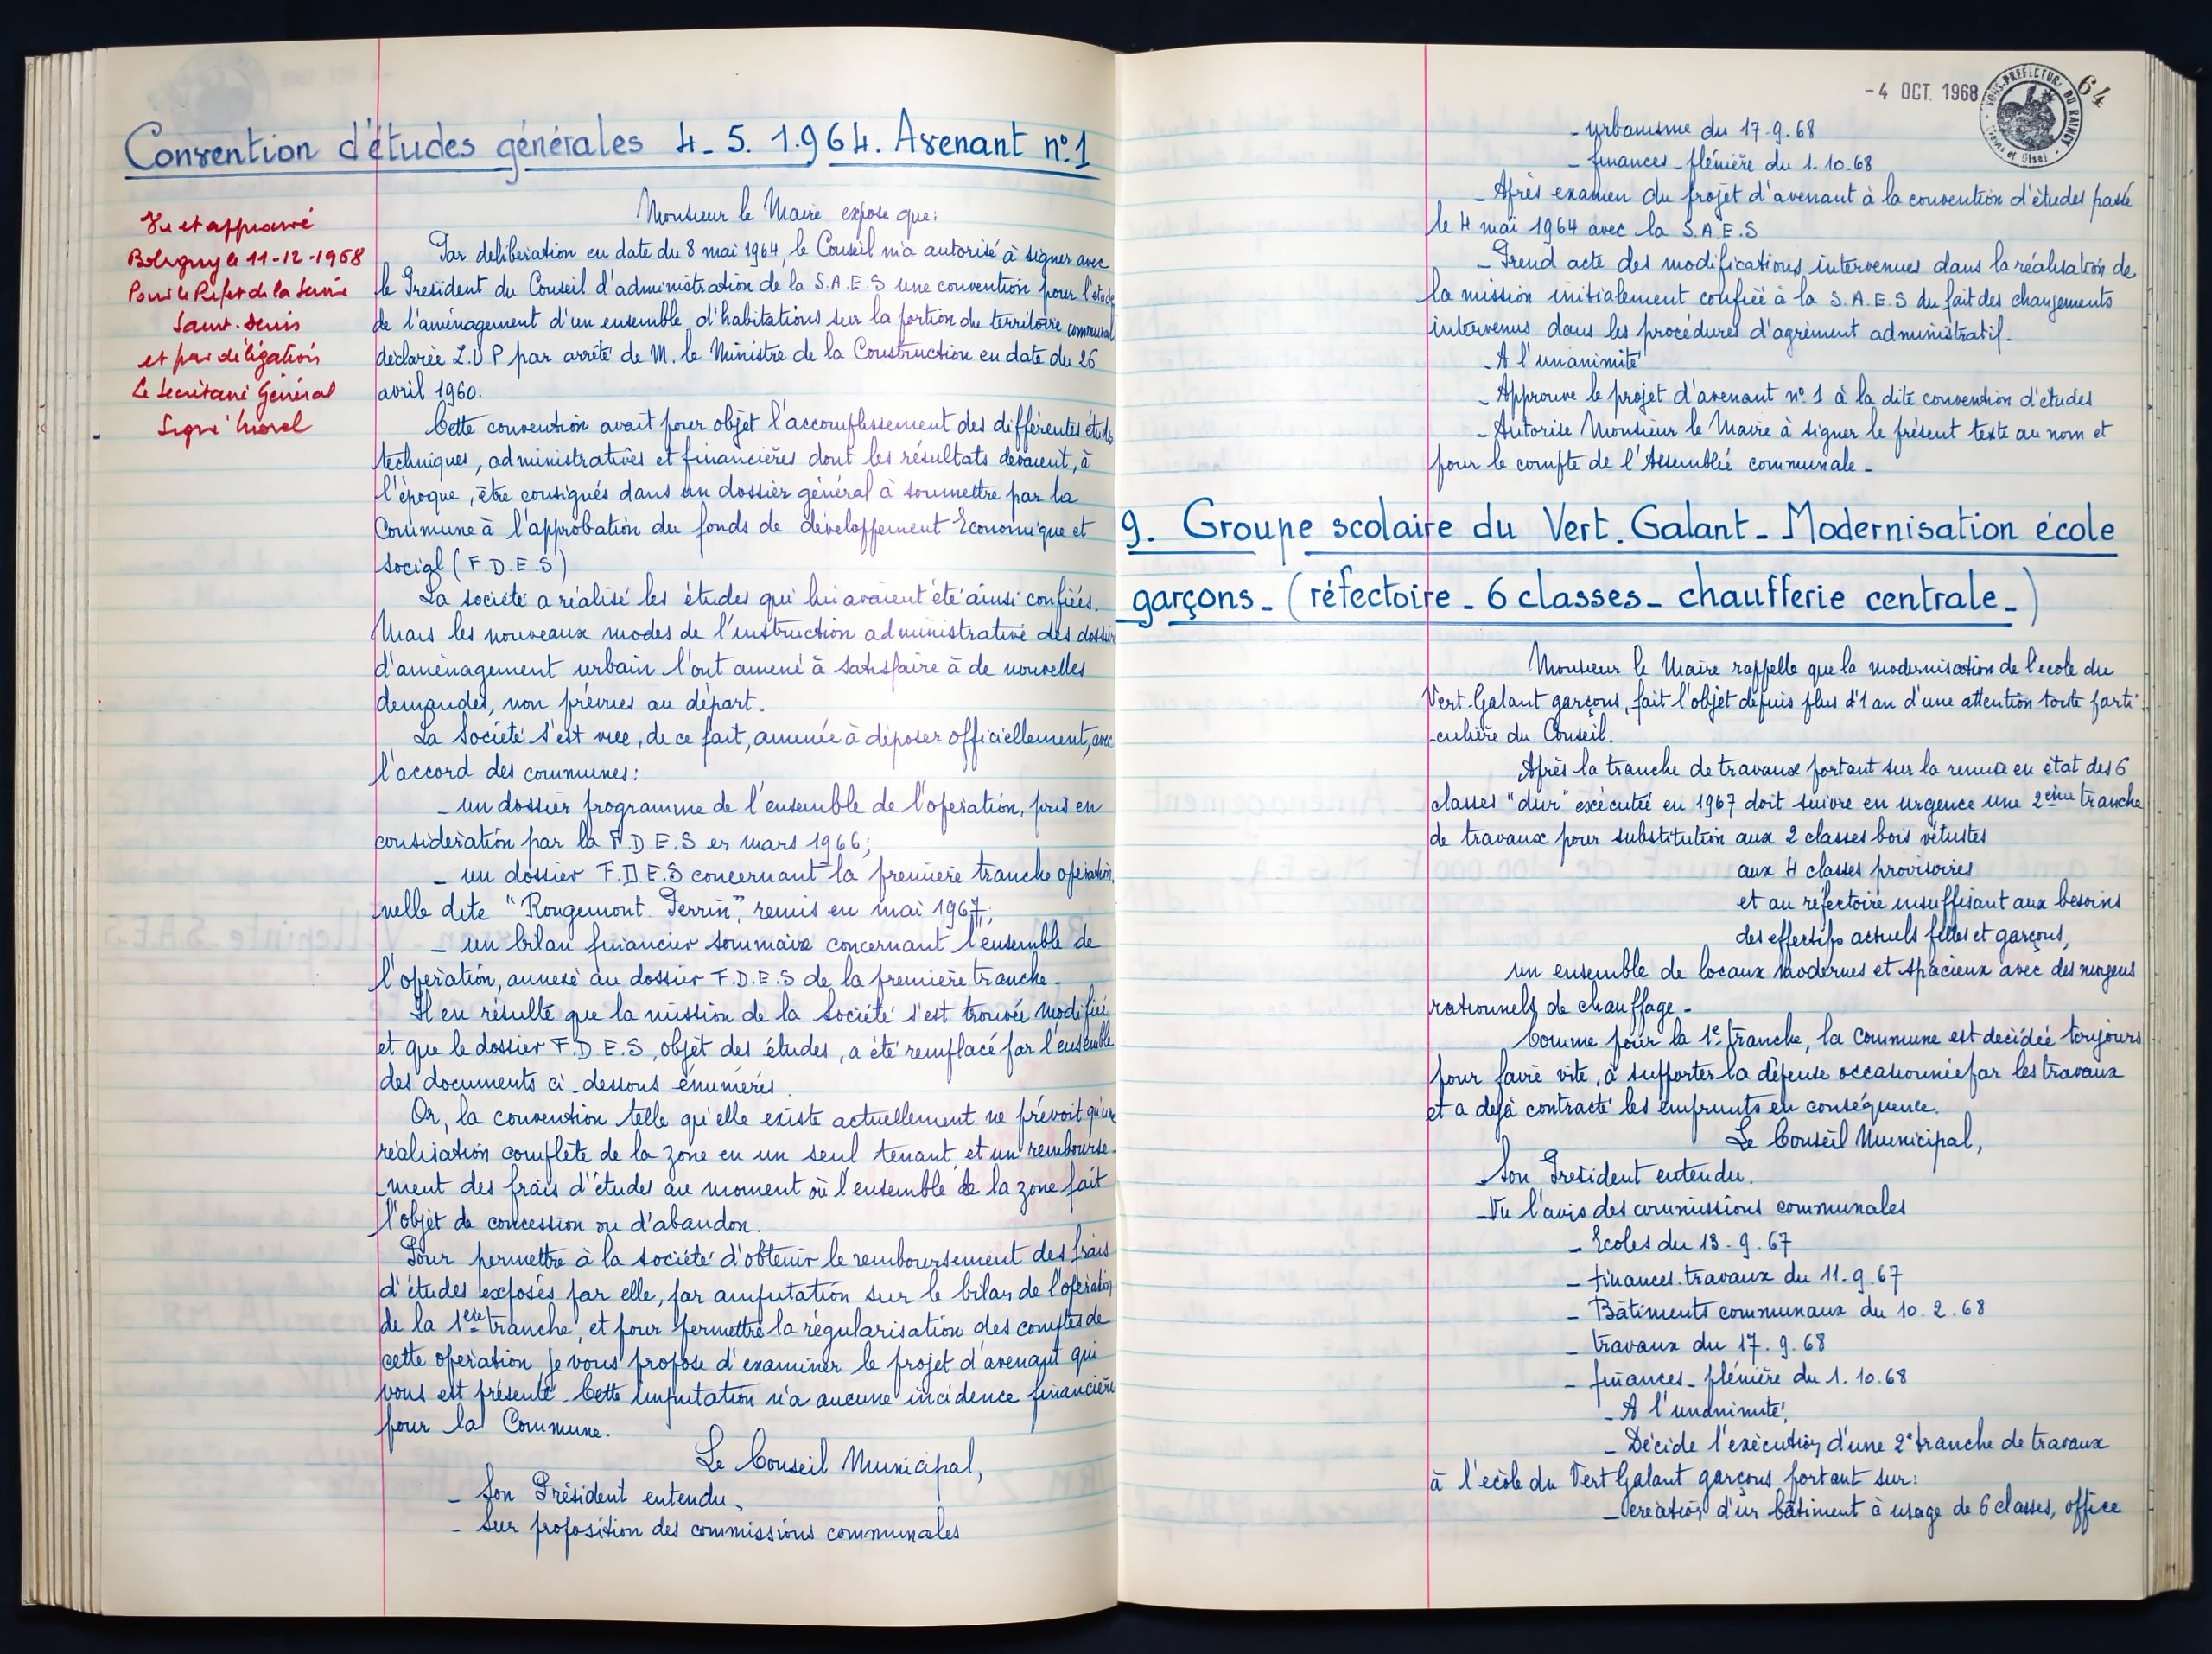 Convention d'études générales 4_ 5. 1.964. Avenant n°.1
Vu et approuvé
Bobigny le 11-12-1968
Pour le Préfet de la Seine
Saint-Denis
et par délégation
Le Secrétaire Général
Signé : Morel
Monsieur le Maire expose que:
Par délibération en date du 8 mai 1964, le Conseil m'a autorisé à signer avec
le Président du Conseil d'administration de la S.A.E.S une convention pour l'étude
de l'aménagement d'un ensemble d'habitations sur la portion du territoire communal
déclarée Z.U P par arrêté de M. le Ministre de la Construction en date du 26
avril 1960.
Cette convention avait pour objet l'accomplissement des différentes études
techniques, administratives et financières dont les résultats devaient, à
l'époque, être consignés dans un dossier général à soumettre par la
Commune à l'approbation du fonds de développement Economique et
Social (F.D.E.S)
La société a réalisé les études qui lui avaient été ainsi confiées.
Mais les nouveaux modes de l'instruction administrative des dossiers
d'aménagement urbain l'ont amené à satisfaire à de nouvelles
demandes, non prévues au départ.
La Société s'est vue, de ce fait, amenée à déposer officiellement, avec
l'accord des communes:
_ un dossier programme de l'ensemble de l'opération, pris en
considération par la F.D E.S en mars 1966;
_ un dossier F.D E.S concernant la première tranche opération.
nelle dite "Rougemont Perrin", remis en mai 1967;
_ un bilan financier sommaire concernant l'ensemble de
l'opération, annexé au dossier F.D.E.S de la première tranche.
Il en résulte que la mission de la Société s'est trouvée modifiée
et que le dossier F.D E.S, objet des études, a été remplacé par l'ensemble
des documents ci-dessous énumérés.
Or, la convention telle qu'elle existe actuellement ne prévoit qu'une
réalisation complète de la zone en un seul tenant, et un rembourse.
_ment des frais d'études au moment où l'ensemble de la zone fait
l'objet de concession ou d'abandon.
Pour permettre à la société d'obtenir le remboursement des frais
d'études exposés par elle, par amputation sur le bilan de l'opération
de la 1ère tranche, et pour permettre la régularisation des comptes de
cette opération, je vous propose d'examiner le projet d'avenant qui
vous est présenté. Cette imputation n'a aucune incidence financière
pour la Commune.
Le Conseil Municipal,
_ Son Président entendu,
_ Sur proposition des commissions communales
-4 OCT. 1968
SOUS-PREFECTURE DU RAINCY
64
_ urbanisme du 17.9.68
_ finances_plénière du 1.10.68
_ Après examen du projet d'avenant à la convention d'études passé
le 4 mai 1964 avec la S.A.E.S
_ Prend acte des modifications intervenues dans la réalisation de
la mission initialement confiée à la S.A.E.S du fait des changements
intervenus dans les procédures d'agrément administratif.
_ A l'unanimité
_ Approuve le projet d'avenant n° 1 à la dite convention d'études
_ Autorise Monsieur le Maire à signer le présent texte au nom et
pour le compte de l'Assemblée communale_
9. Groupe scolaire du Vert.Galant_Modernisation école
garçons_ (réfectoire_6 classes_ chaufferie centrale_)
Monsieur le Maire rappelle que la modernisation de l'école du
Vert.Galant garçons, fait l'objet depuis plus d'1 an d'une attention toute parti.
_culière du Conseil.
Après la tranche de travaux portant sur la remise en état des 6
classes "dur" exécutée en 1967 doit suivre en urgence une 2ème tranche
de travaux pour substitution aux 2 classes bois vétustes
aux 4 classes provisoires
et au réfectoire insuffisant aux besoins
des effectifs actuels filles et garçons,
un ensemble de locaux modernes et spacieux avec des moyens
rationnels de chauffage_
Comme pour la 1e tranche, la commune est décidée toujours
pour faire vite, à supporter la dépense occasionnée par les travaux
et a déjà contracté les emprunts en conséquence.
Le Conseil Municipal,
Son Président entendu.
_Vu l'avis des commissions communales
_ Ecoles du 13.9.67
_ finances.travaux du 11.9.67
_ Bâtiments communaux du 10.2.68
_ travaux du 17.9.68
_ finances_plénière du 1.10.68
_ A l'unanimité,
_ Décide l'exécution d'une 2e tranche de travaux
à l'école du Vert Galant garçons portant sur:
_création d'un bâtiment à usage de 6 classes, office